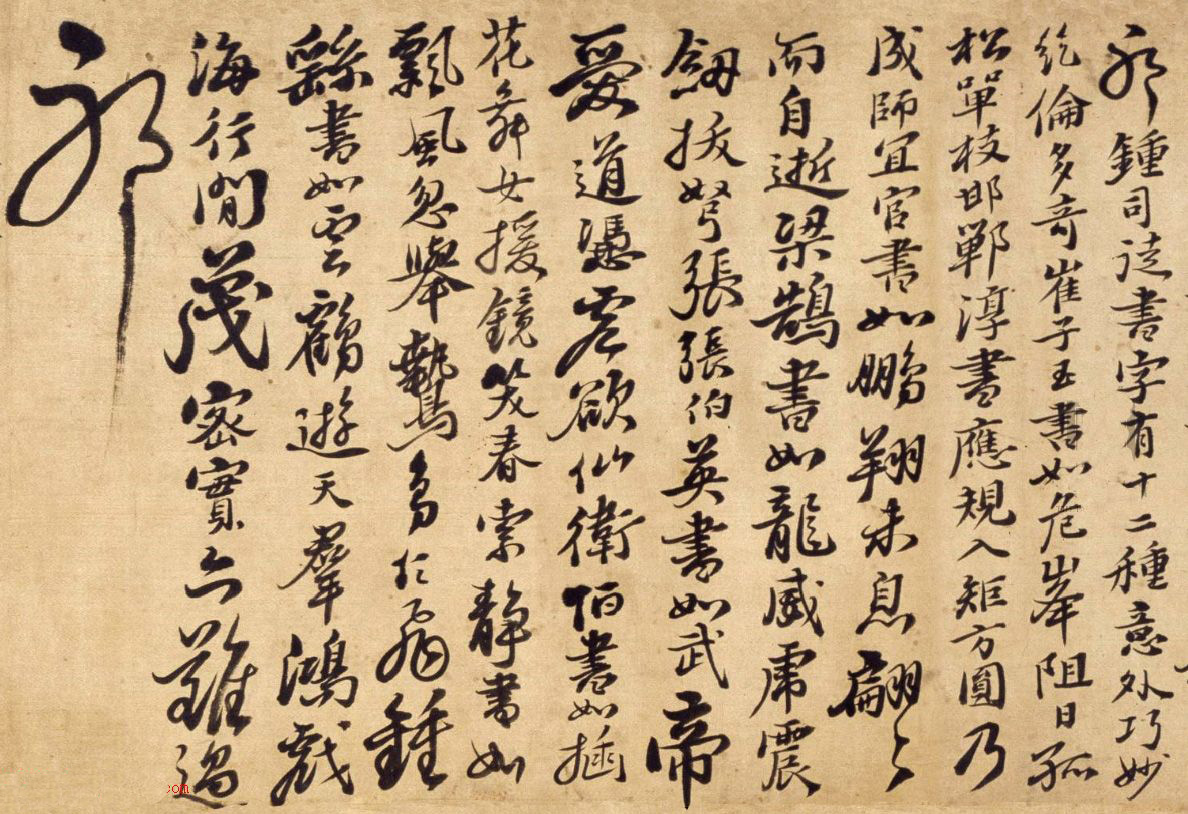 耶鍾司徒書字有十二種意外巧妙
絶倫多奇崔子玉書如危峯阻日孤
松單枝邯鄲淳書應規入矩方圓乃
成師宜官書如鵬翔未息翩々
而自逝梁鵠書如龍威虎震
劔拔弩張張伯英書如武帝
愛道憑虚欲仙衛恒書如插
花舞女援鏡笑春索靜書如
飄風忽舉鷙鳥乍飛鍾
繇書如雲鶴遊天羣鴻戲
海行間茂密實亦難過
耶